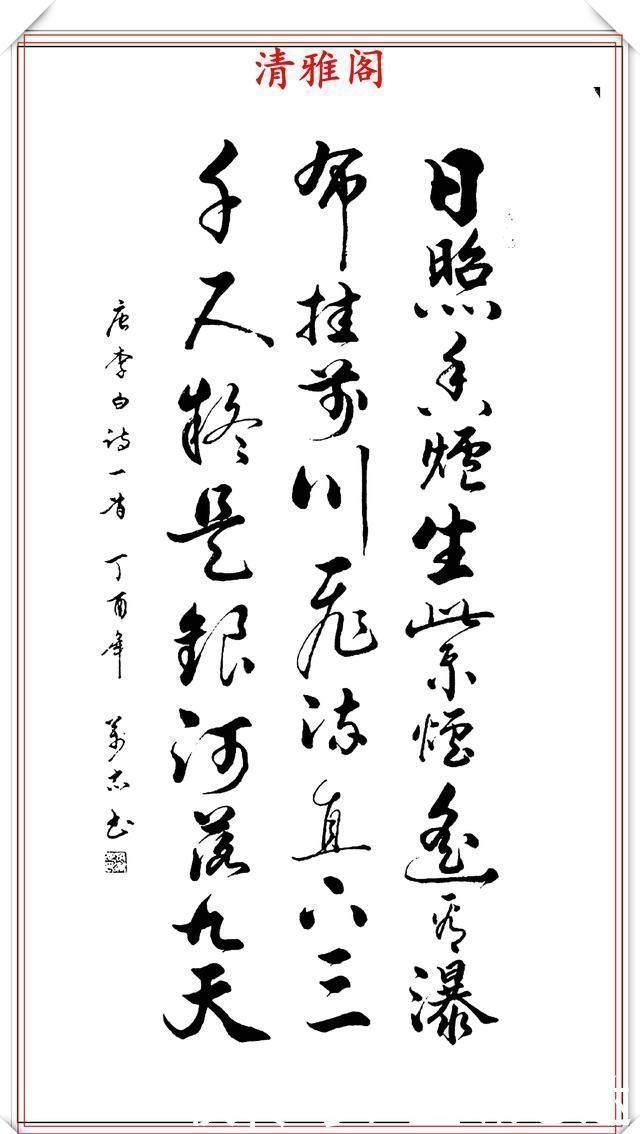 清雅阁
日照香爐生紫煙遙看瀑
布挂前川飛流直下三
千尺疑是銀河落九天
唐李白詩一首 丁酉年 萬志书